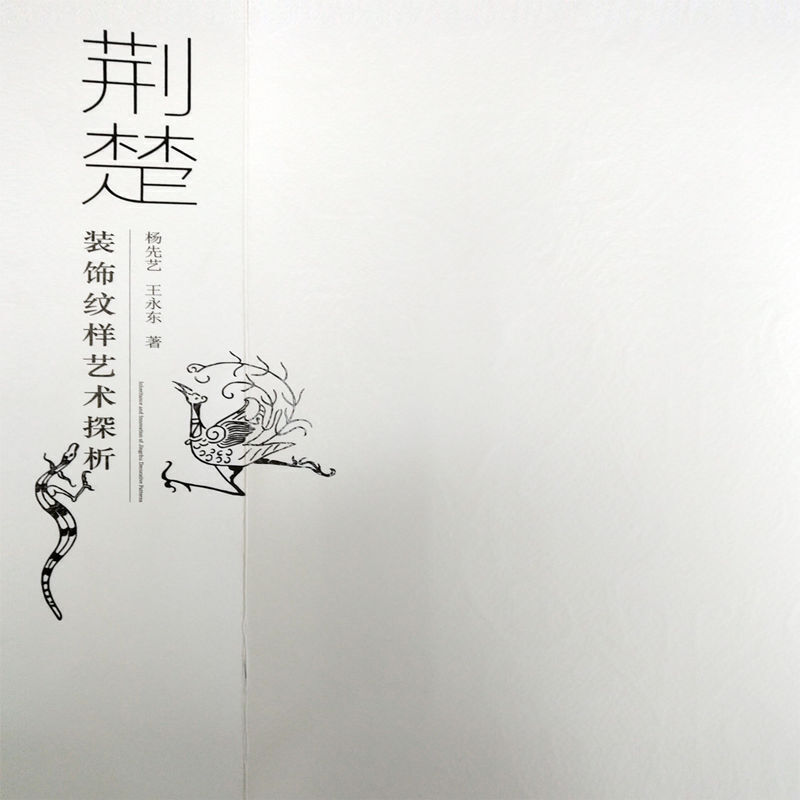 荆楚
装饰纹样艺术探析
杨先艺 王永东 著
Inheritance and Innovation of Jingchu Decorative Patterns